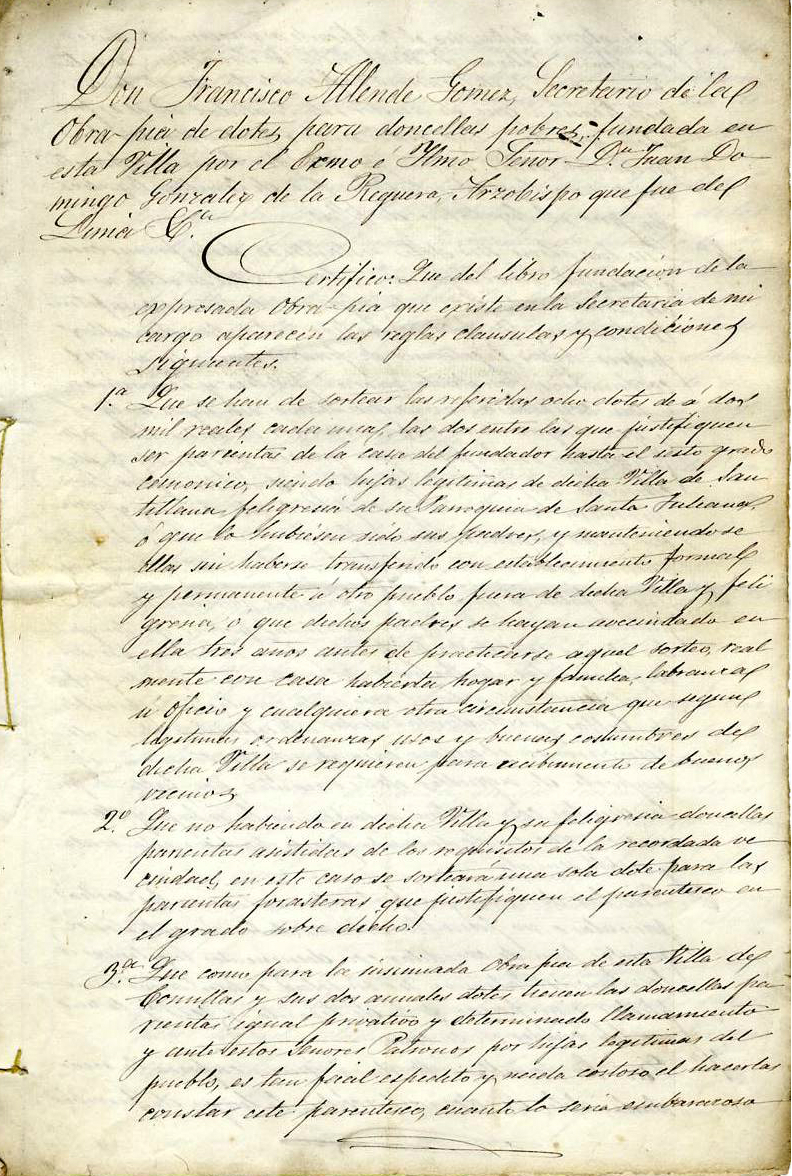 Don Francisco Allende Gomez, Secretario de la
Obra-pia de dotes, para doncellas pobres, fundada en
esta Villa por el Exmo e Ilmo Señor Dn. Juan Do
mingo Gonzalez de la Reguera, Arzobispo que fue de
Lima &.a
Certifico: Que del libro fundacion de la
expresada Obra-pia que existe en la Secretaria de mi
cargo aparecen las reglas clausulas y condiciones
siguientes.
1.a Que se han de sortear las referidas ocho dotes de á dos
mil reales cada una, las dos entre las que justifiquen
ser parientas de la casa del fundador hasta el sesto grado
canonico, siendo hijas legitimas de dicha Villa de San
tillana, feligresia de su Parroquia de Santa Juliana,
ó que lo hubiesen sido sus padres, y manteniendose
ellas sin haberse transferido con establecimiento formal
y permanente á otro pueblo fuera de dicha Villa y feli
gresia, ó que dichos padres se hayan avecindado en
ella tres años antes de practicarse aquel sorteo, real
mente con casa habierta, hogar y familia, labranza
u oficio y cualquiera otra circunstancia que segun
legitimas ordenanzas usos y buenas costumbres de
dicha Villa se requieren para recibimiento de buenos
vecinos.
2.a Que no habiendo en dicha Villa y su feligresia doncellas
parientas asistidas de los requisitos de la recordada ve
cindad, en este caso se sorteará una sola dote para las
parientas forasteras que justifiquen el parentesco en
el grado sobre dicho.
3.a Que como para la insinuada obra pia de esta Villa de
Comillas y sus dos anuales dotes tienen las doncellas pa
rientas igual privativo y determinado llamamiento
y ante estos Señores Patronos por hijas legitimas del
pueblo, es tan facil espedito y nada costoso el hacerlas
constar este parentesco, cuanto lo seria embarazoso